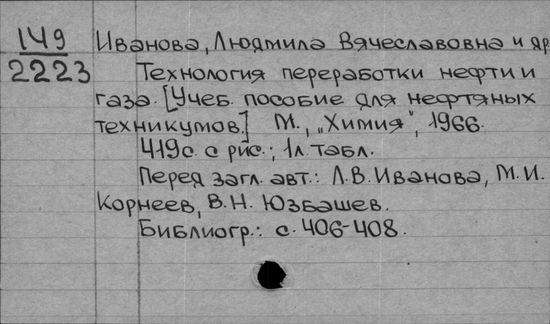 149
2223
Иванова, Людмила Вячеславовна и др
Технология переработки нефти и
газа. [Учеб. пособие для нефтяных
техникумов.] М., „Химия", 1966.
419с. с рис.; 1л. табл.
Перед загл. авт.: Л.В. Иванова, М.И.
Корнеев, В.Н. Юзбашев.
Библиогр.: с. 406-408.